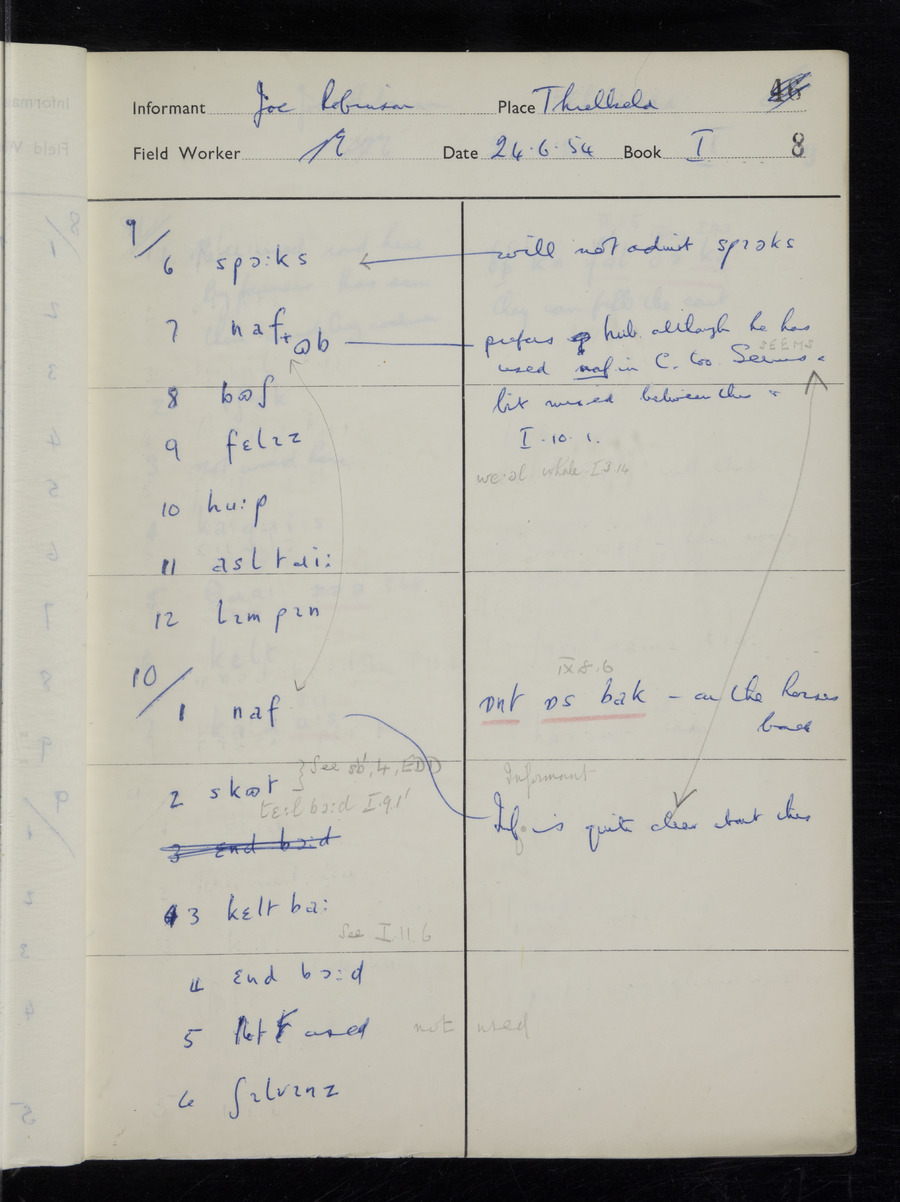 Informant Joe Robinson Place Threlkeld 46
Field Worker Date 24.6.54 Book I 8
9/
6 spɔ:ks will not admit sprɔks
7 naf + ɷb prefers hub although he has
used naf in C. too. Seems a SEEMS
8 bɷʃ bit mixed between this &
I.10.1.
9 fɛlɪz
we:əl whole I.3.14
10 hu:p
11 asl tɑi:
12 lɪmpɪn
10/
IX.8.6
1 naf ɒnt ɒs bak – on the horses
back
} See sb', 4, EDD
2 skɷt Informant
te:l bɔ:d I.9.1'
Inf. is quite clear about this
3 ɛnd bɔ:d
4 3 kɛlt ba:
See I.11.6
4 ɛnd bɔ:d
5 Not used not used
6 ʃɪlvɪnz